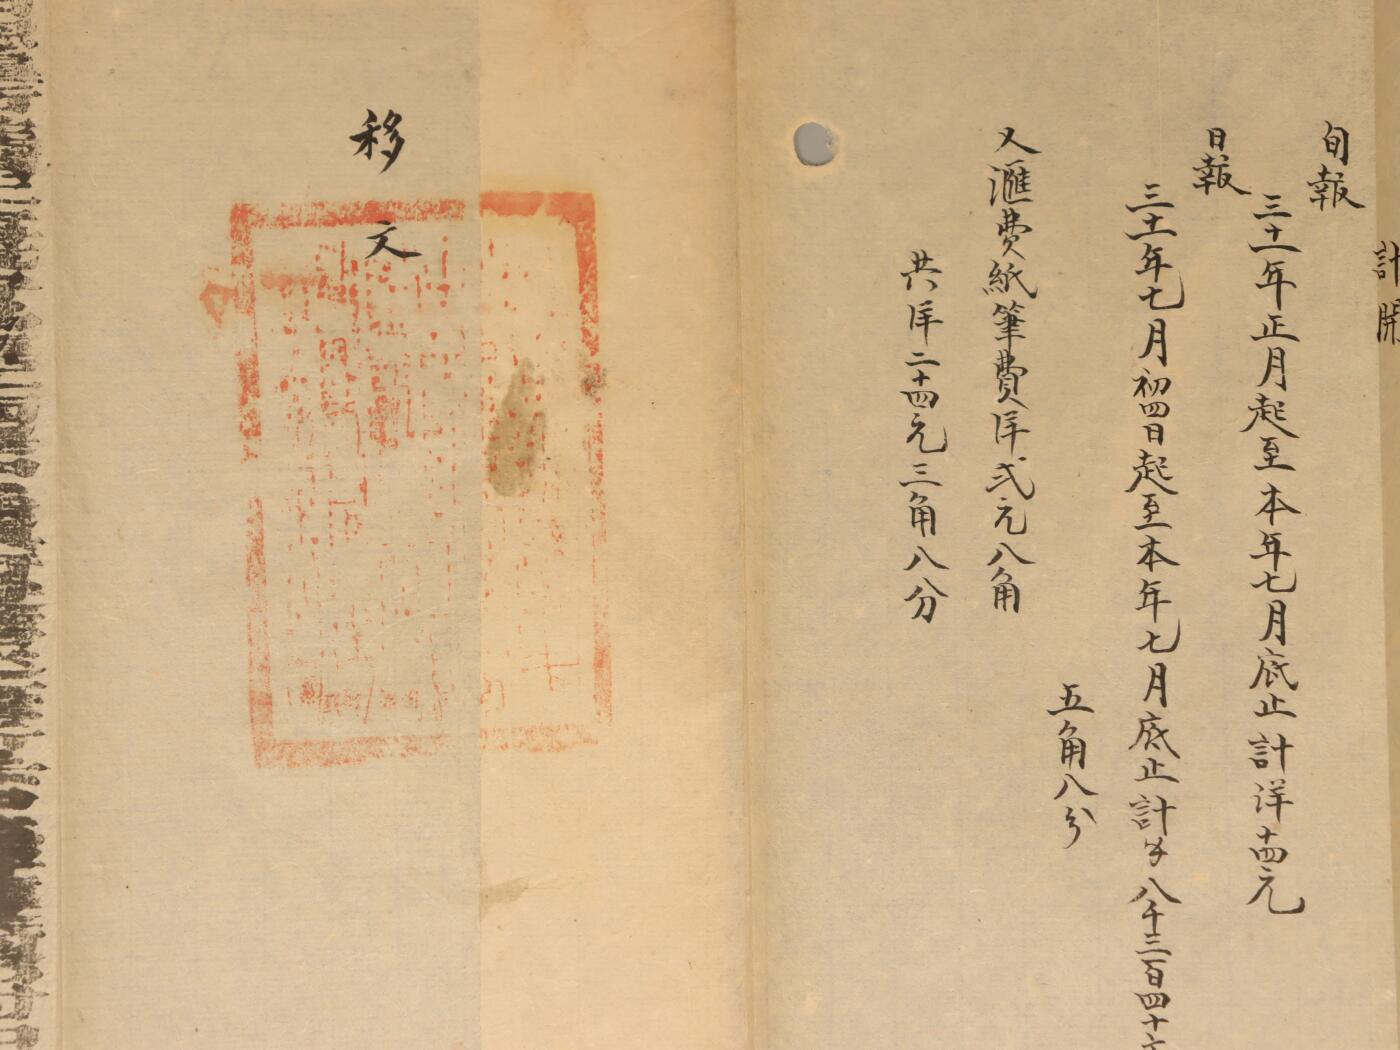 計開
旬報
三十一年正月起至本年七月底止計洋十四元
日報
三十一年七月初四日起至本年七月底止計字八千三百四十六
五角八分
又滙費紙筆費洋弍元八角
共洋二十四元三角八分
移文